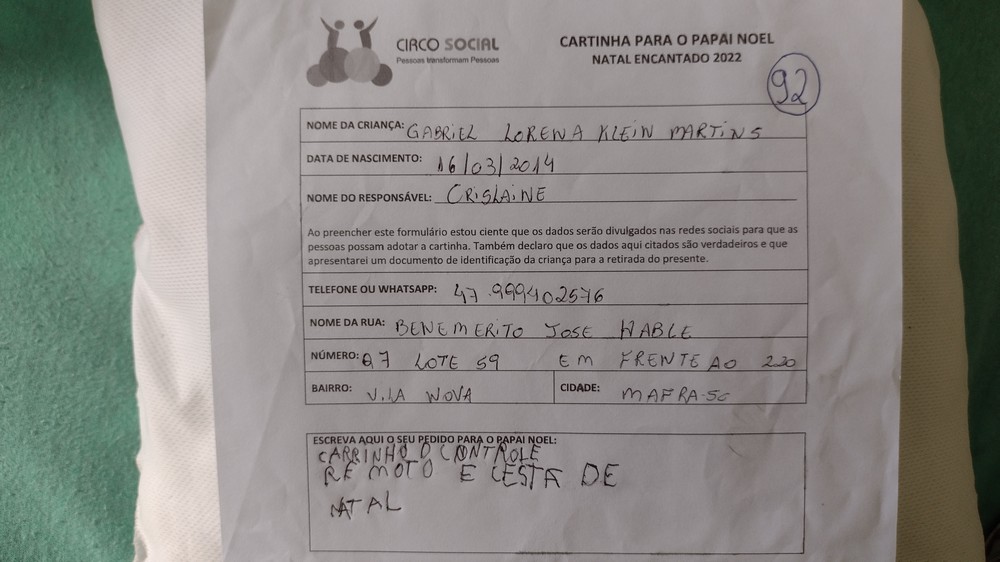 CIRCO SOCIAL
Pessoas transformam Pessoas
CARTINHA PARA O PAPAI NOEL
NATAL ENCANTADO 2022
92
NOME DA CRIANÇA: GABRIEL LORENA KLEIN MARTINS
DATA DE NASCIMENTO: 16/03/2014
NOME DO RESPONSÁVEL: CRISLAINE
Ao preencher este formulário estou ciente que os dados serão divulgados nas redes sociais para que as
pessoas possam adotar a cartinha. Também declaro que os dados aqui citados são verdadeiros e que
apresentarei um documento de identificação da criança para a retirada do presente.
TELEFONE OU WHATSAPP: 47.999402576
NOME DA RUA: BENEMERITO JOSE HABLE
NÚMERO: Q7 LOTE 59 EM FRENTE AO 220
BAIRRO: VILA NOVA CIDADE: MAFRA-SC
ESCREVA AQUI O SEU PEDIDO PARA O PAPAI NOEL:
CARRINHO D CONTROLE
REMOTO E CESTA DE
NATAL